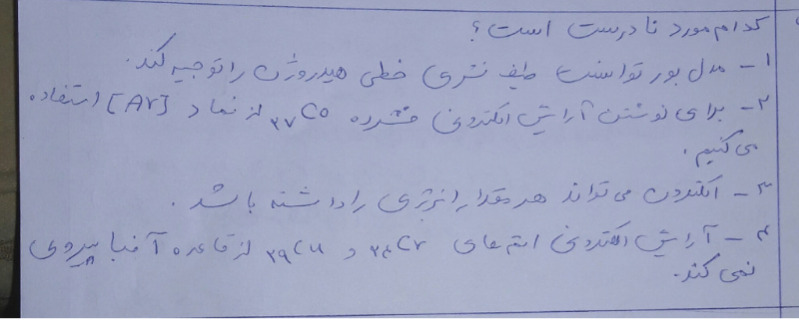 کدام مورد نادرست است؟
۱- مدل بور توانست طیف نشری خطی هیدروژن را توجیه کند.
۲- برای نوشتن آرایش الکترونی فشرده ₂₇Co از نماد [Ar] استفاده
می کنیم.
۳- الکترون می تواند هر مقدار انرژی را داشته باشد.
۴- آرایش الکترونی اتم های ₂₄Cr و ₂₉Cu از قاعده آفبا پیروی
نمی کند.